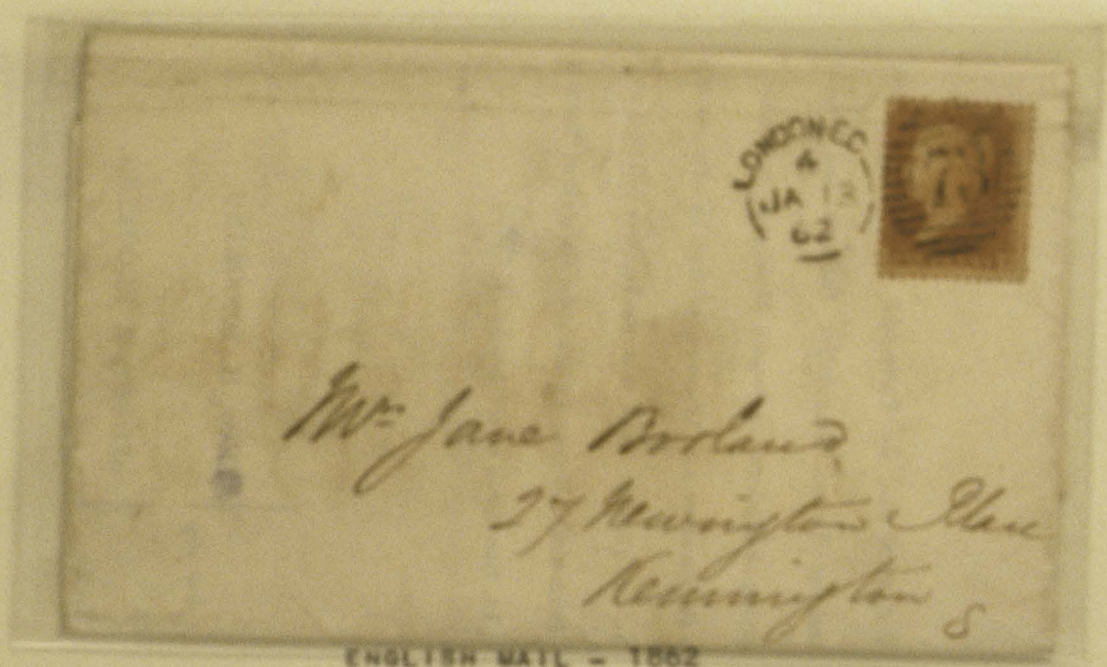 LONDON EC
4
JA 18
62
Mrs Jane Borland
27 Newington Place
Kennington
S
ENGLISH MAIL - 1862